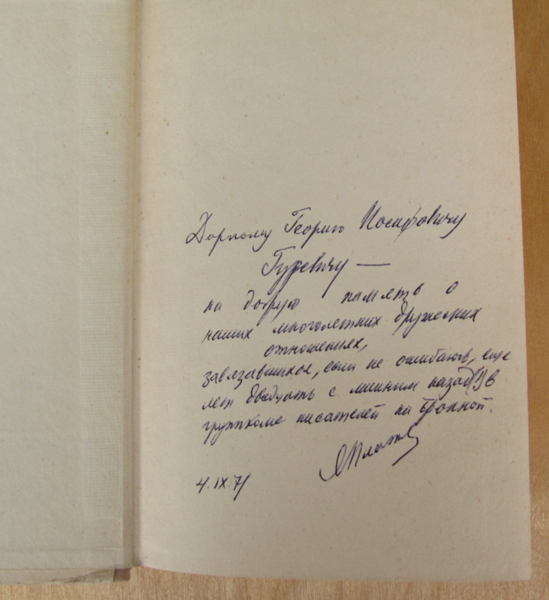 Дорогому Георгию Иосифовичу
Гуревичу —
на добрую память о
наших многолетних дружеских
отношениях,
завязавшихся, если не ошибаюсь, еще
лет двадцать с лишним назад(!) в
групкоме писателей на Бронной.
4.IX.71